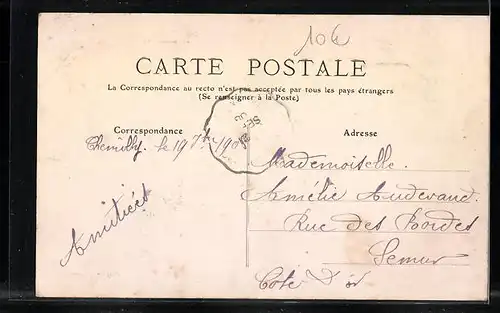 10h
CARTE POSTALE
La Correspondance au recto n'est pas acceptée par tous les pays étrangers
(Se renseigner à la Poste)
Correspondance
Adresse
le 19 7bre 190
Amitiées
Mademoiselle.
Amélie Audevaud.
Rue des Bordes
Semur
Côte d'or
21
SEPT